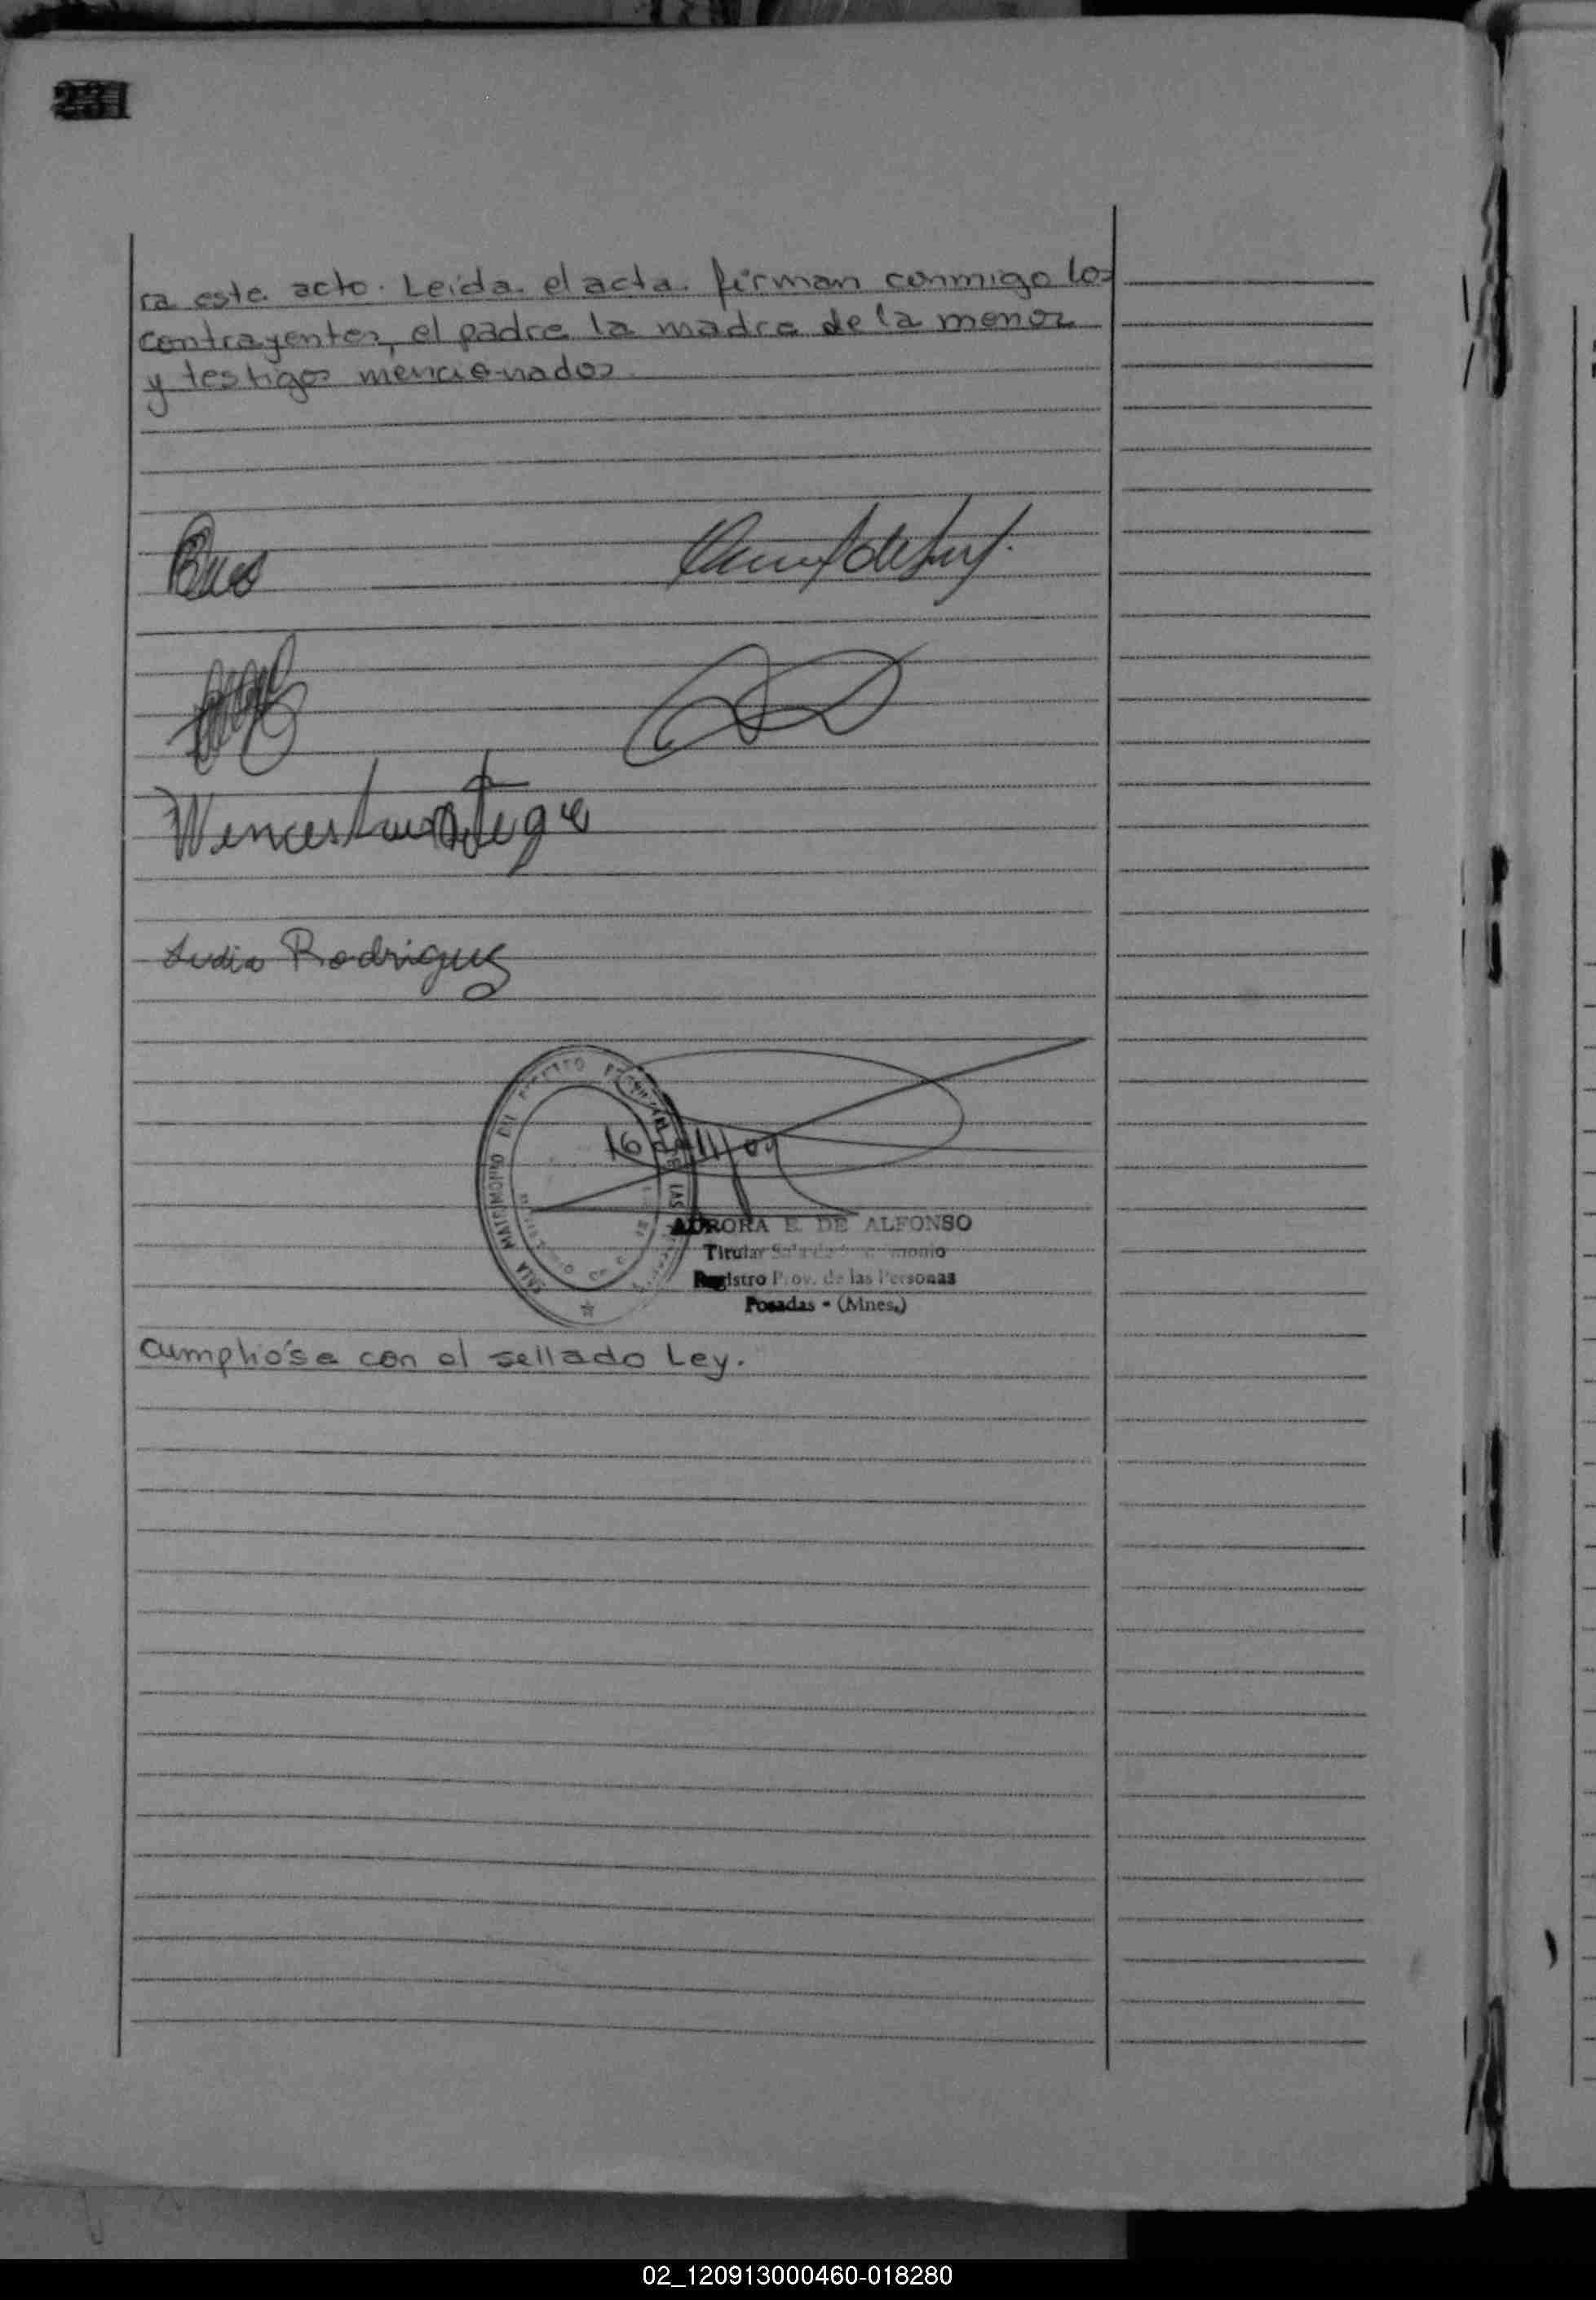 231
ra este acto. Leida el acta. firman conmigo los
contrayentes, el padre la madre de la menor
y testigos mencionados.
Lidia Rodriguez
SALA MATRIMONIO DEL REGISTRO PROVINCIAL DE LAS
16
AURORA E. DE ALFONSO
Titular Sala de Matrimonio
Registro Prov. de las Personas
Posadas - (Mnes.)
Cumplióse con el sellado Ley.
02_120913000460-018280